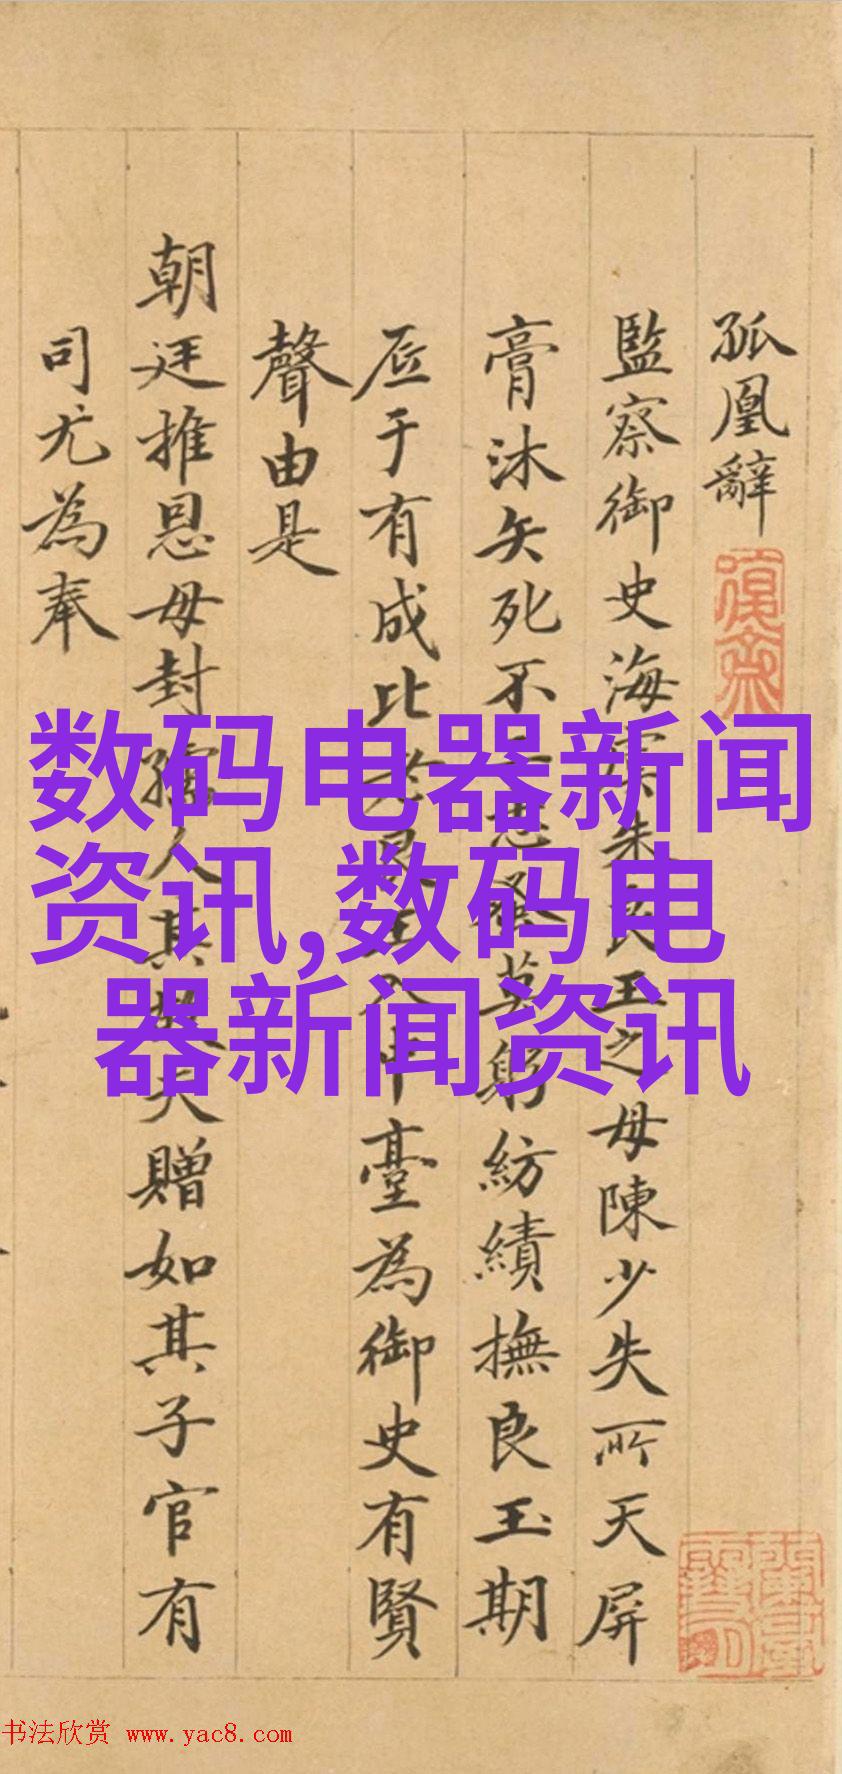 孤凰辭
監察御史海虞朱良玉之母陳少失所天屏
膏沐矢死不二志發莫躬紡績撫良玉期
底于有成比者良玉入中臺為御史有賢
聲由是
朝廷推恩母封孺人其故夫贈如其子官有
司尤為奉
数码电器新闻
资讯,数码电
器新闻资讯
书法欣赏 www.yac8.com